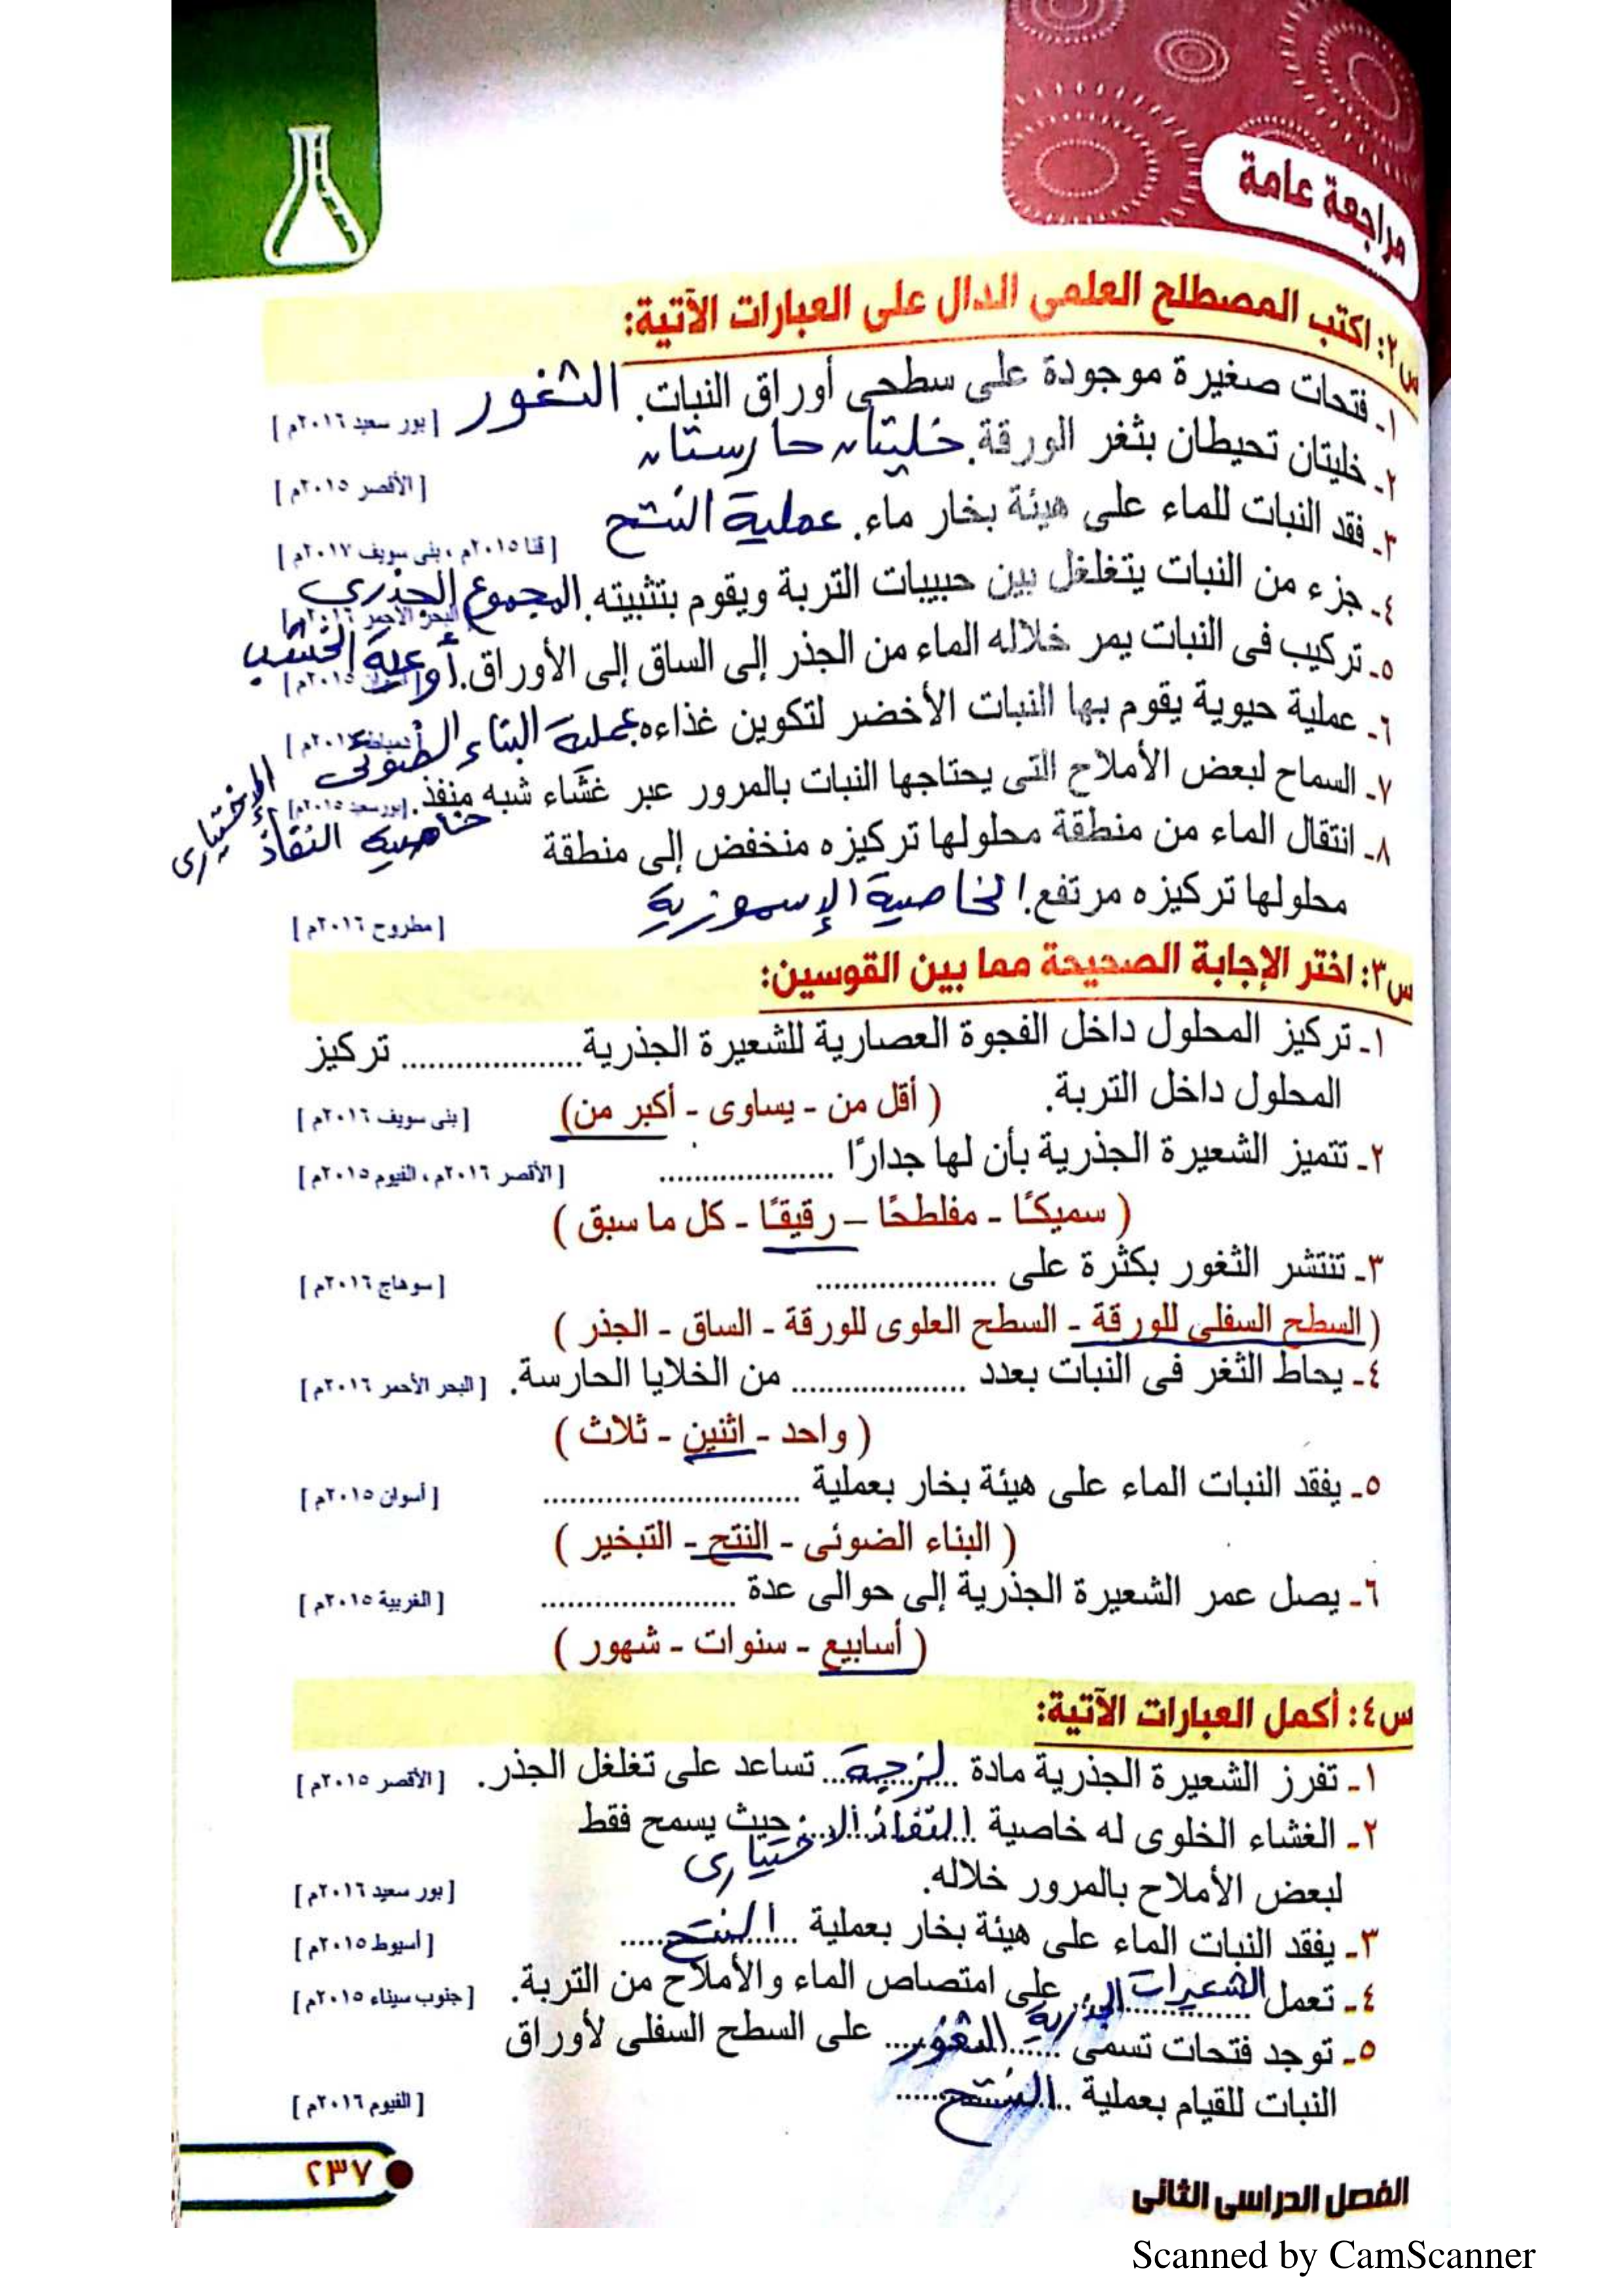 مراجعة عامة
س٢: اكتب المصطلح العلمى الدال على العبارات الآتية:
١ـ فتحات صغيرة موجودة على سطحى أوراق النبات. الثغور [بور سعيد ٢٠١٦م]
٢ـ خليتان تحيطان بثغر الورقة. خليتان حارستان [الأقصر ٢٠١٥م]
٣ـ فقد النبات للماء على هيئة بخار ماء. عملية النتح [قنا ٢٠١٥م ، بنى سويف ٢٠١٧م]
٤ـ جزء من النبات يتغلغل بين حبيبات التربة ويقوم بتثبيته. المجموع الجذري [البحر الأحمر ٢٠١٦م]
٥ـ تركيب فى النبات يمر خلاله الماء من الجذر إلى الساق إلى الأوراق. أوعية الخشب ٢٠١٥م]
٦ـ عملية حيوية يقوم بها النبات الأخضر لتكوين غذاءه. عملية البناء الضوئى [دمياط
٧ـ السماح لبعض الأملاح التى يحتاجها النبات بالمرور عبر غشاء شبه منفذ. [بورسعيد ٢٠١٥م]
خاصية النفاذ الإختيارى
٨ـ انتقال الماء من منطقة محلولها تركيزه منخفض إلى منطقة
محلولها تركيزه مرتفع. الخاصية الإسموزية [مطروح ٢٠١٦م]
س٣: اختر الإجابة الصحيحة مما بين القوسين:
١ـ تركيز المحلول داخل الفجوة العصارية للشعيرة الجذرية .................... تركيز
المحلول داخل التربة. (أقل من ـ يساوى ـ أكبر من) [بنى سويف ٢٠١٦م]
٢ـ تتميز الشعيرة الجذرية بأن لها جدارًا .................... [الأقصر ٢٠١٦م ، الفيوم ٢٠١٥م]
(سميكًا ـ مفلطحًا ـ رقيقًا ـ كل ما سبق)
٣ـ تنتشر الثغور بكثرة على .................... [سوهاج ٢٠١٦م]
(السطح السفلى للورقة ـ السطح العلوى للورقة ـ الساق ـ الجذر)
٤ـ يحاط الثغر فى النبات بعدد .................... من الخلايا الحارسة. [البحر الأحمر ٢٠١٦م]
(واحد ـ اثنين ـ ثلاث)
٥ـ يفقد النبات الماء على هيئة بخار بعملية ............................ [أسوان ٢٠١٥م]
(البناء الضوئى ـ النتح ـ التبخير)
٦ـ يصل عمر الشعيرة الجذرية إلى حوالى عدة ...................... [الغربية ٢٠١٥م]
(أسابيع ـ سنوات ـ شهور)
س٤: أكمل العبارات الآتية:
١ـ تفرز الشعيرة الجذرية مادة لزجة تساعد على تغلغل الجذر. [الأقصر ٢٠١٥م]
٢ـ الغشاء الخلوى له خاصية النفاذ الاختيارى حيث يسمح فقط
لبعض الأملاح بالمرور خلاله. [بور سعيد ٢٠١٦م]
٣ـ يفقد النبات الماء على هيئة بخار بعملية النتح [أسيوط ٢٠١٥م]
٤ـ تعمل الشعيرات الجذرية على امتصاص الماء والأملاح من التربة. [جنوب سيناء ٢٠١٥م]
٥ـ توجد فتحات تسمى الثغور على السطح السفلى لأوراق
النبات للقيام بعملية النتح [الفيوم ٢٠١٦م]
الفصل الدراسى الثانى
٢٣٧
Scanned by CamScanner